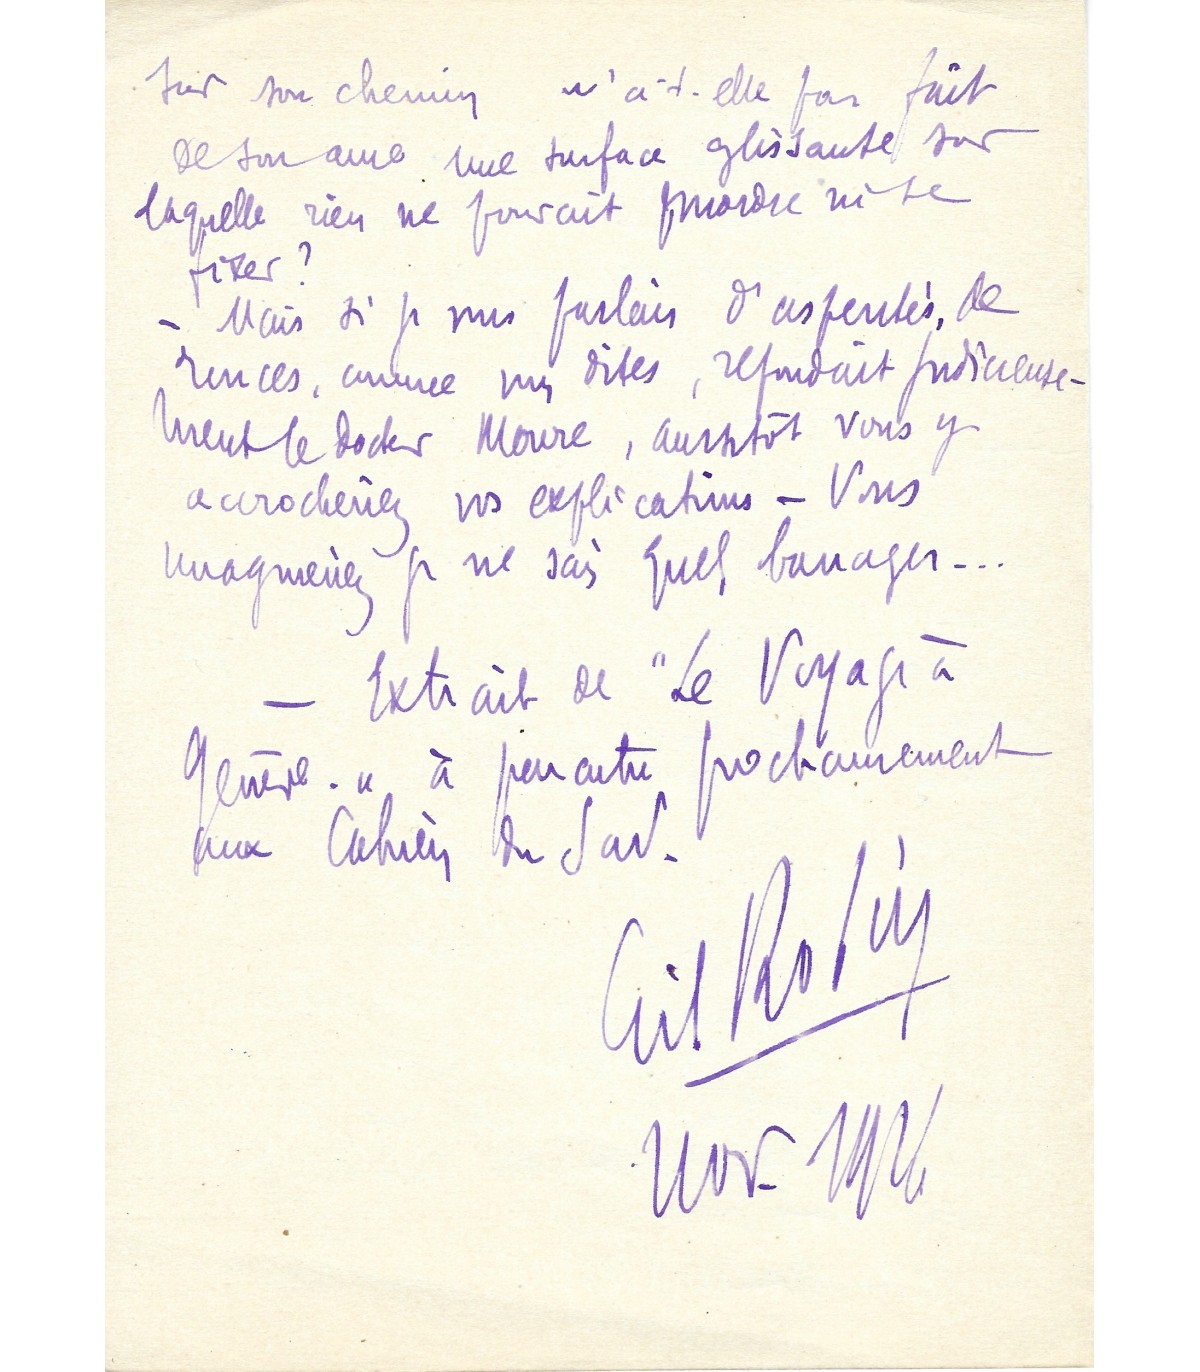 sur son chemin n'a-t-elle pas fait
de son ame une surface glissante sur
laquelle rien ne pourrait mordre ni se
fixer ?
– Mais si je vous parlais d'asperités, de
ronces, comme vous dites, repondait judicieuse-
ment le docteur Moure, aussitôt vous y
accrocheriez vos explications – Vous
imagineriez je ne sais quels barrages....
– Extrait de "Le Voyage à
Genève." à paraitre prochainement
aux Cahiers du Sud.
Gil Robin
Nov. 1926